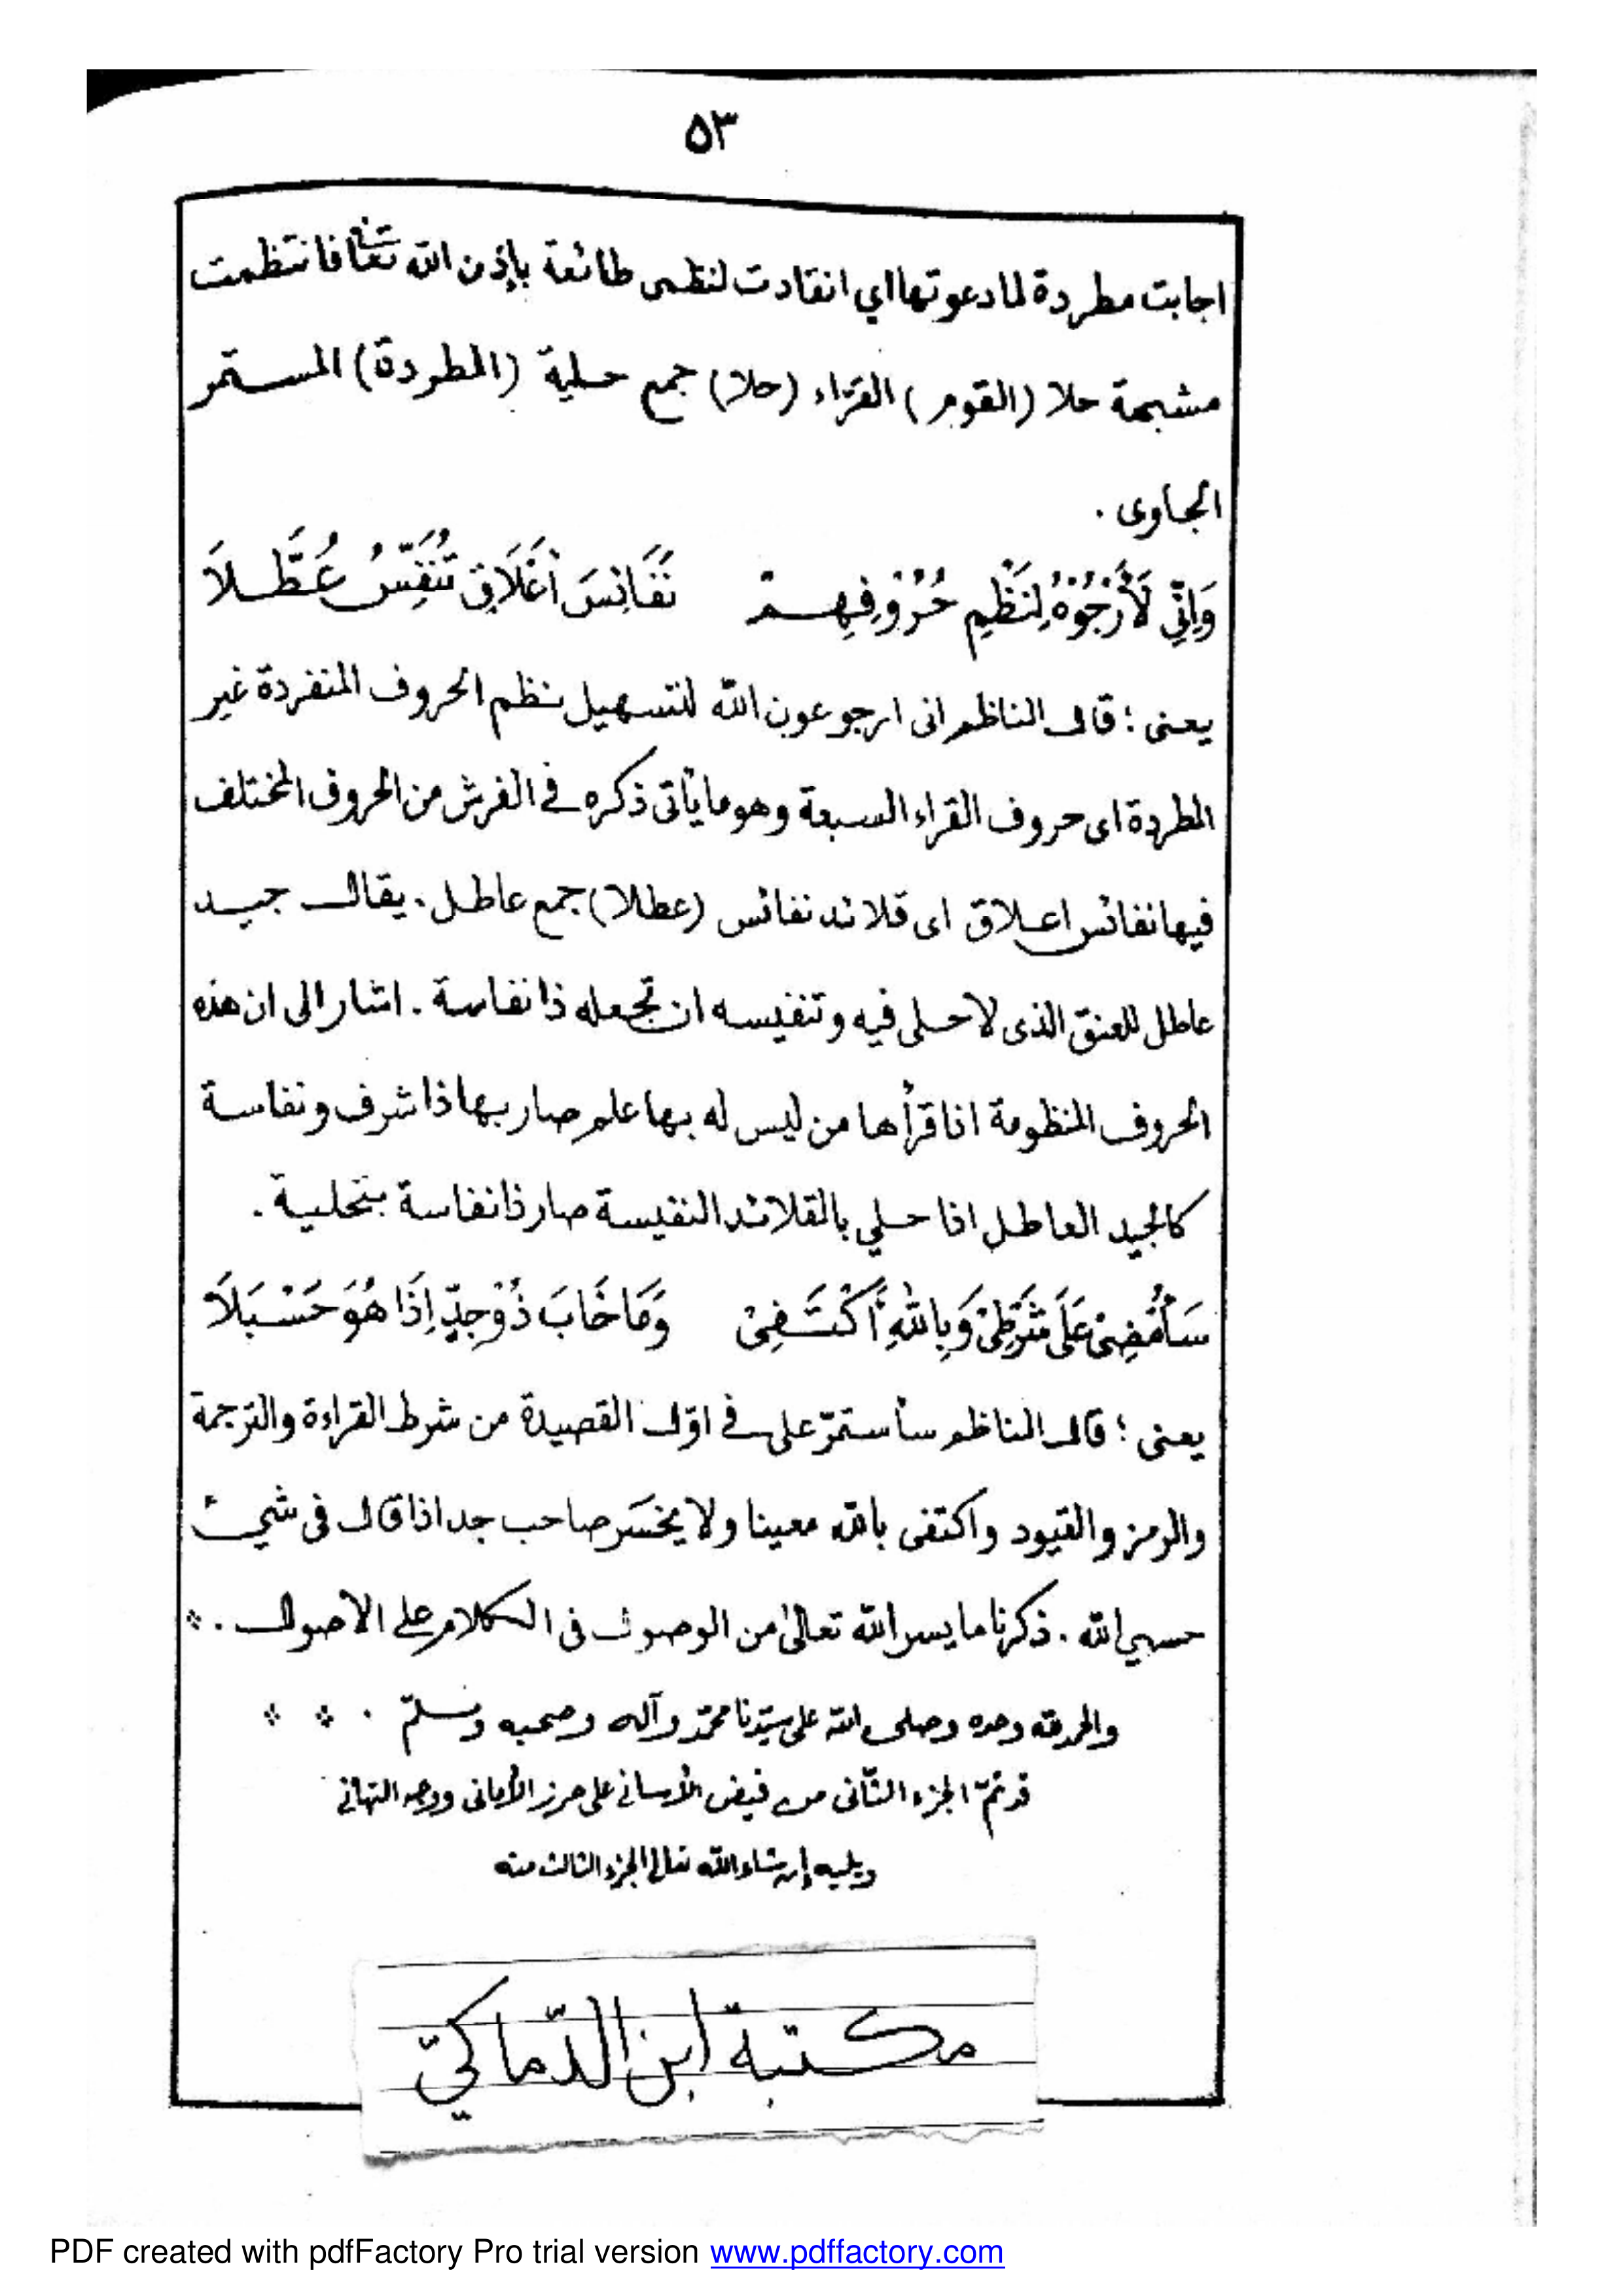 ٥٣
اجابت مطردة لما دعوتها اي انقادت لنظمى طائعة بإذن الله تعا فانتظمت
مشبهة حلا (القوم) القرّاء (حلا) جمع حلية (المطردة) المستمر
الجاوى .
وَاِنِّي لَأَرْجُوْهُ لِنَظْمِ حُرُوْفِهِمْ نَفَائِسَ أَعْلَاقٍ تُنَفِّسُ عُطَّلاَ
يعنى ؛ قال الناظم انى ارجو عون الله لتسهيل نظم الحروف المنفردة غير
المطردة اى حروف القراء السبعة وهو ما يأتى ذكره في الفرش من الحروف المختلف
فيها نفائس اعلاق اى قلائد نفائس (عطلا) جمع عاطل . يقال جيد
عاطل للعنق الذى لا حلى فيه وتنفيسه ان تجعله ذا نفاسة . اشار الى ان هذه
الحروف المنظومة اذا قرأها من ليس له بها علم صار بها ذا شرف ونفاسة
كالجيد العاطل اذا حلي بالقلائد النفيسة صار ذا نفاسة بتحلية .
سَأَمْضِىْ عَلَى شَرْطِىْ وَبِاللّٰهِ أَكْتَفِىْ وَمَا خَابَ ذُوْ جِدٍّ اِذَا هُوَ حَسْبَلاَ
يعنى ؛ قال الناظم سأستمرّ على في اوّل القصيدة من شرط القراءة والترجمة
والرمز والقيود واكتفى بالله معينا ولا يخسَر صاحب جد اذا قال فى شيئ
حسبي الله . ذكرنا ما يسر الله تعالىٰ من الوصول فى الكلام على الاصول .
والحمد لله وحده وصلى الله على سيّدنا محمّد وآله وصحبه وسلّم .
قد تمّ الجزء الثّانى من فيض الأسانى على حرز الأمانى ووجه التهانى
ويليه إن شاء الله تعالى الجزء الثالث منه
مكتبة ابن الدّماكيّ
PDF created with pdfFactory Pro trial version www.pdffactory.com